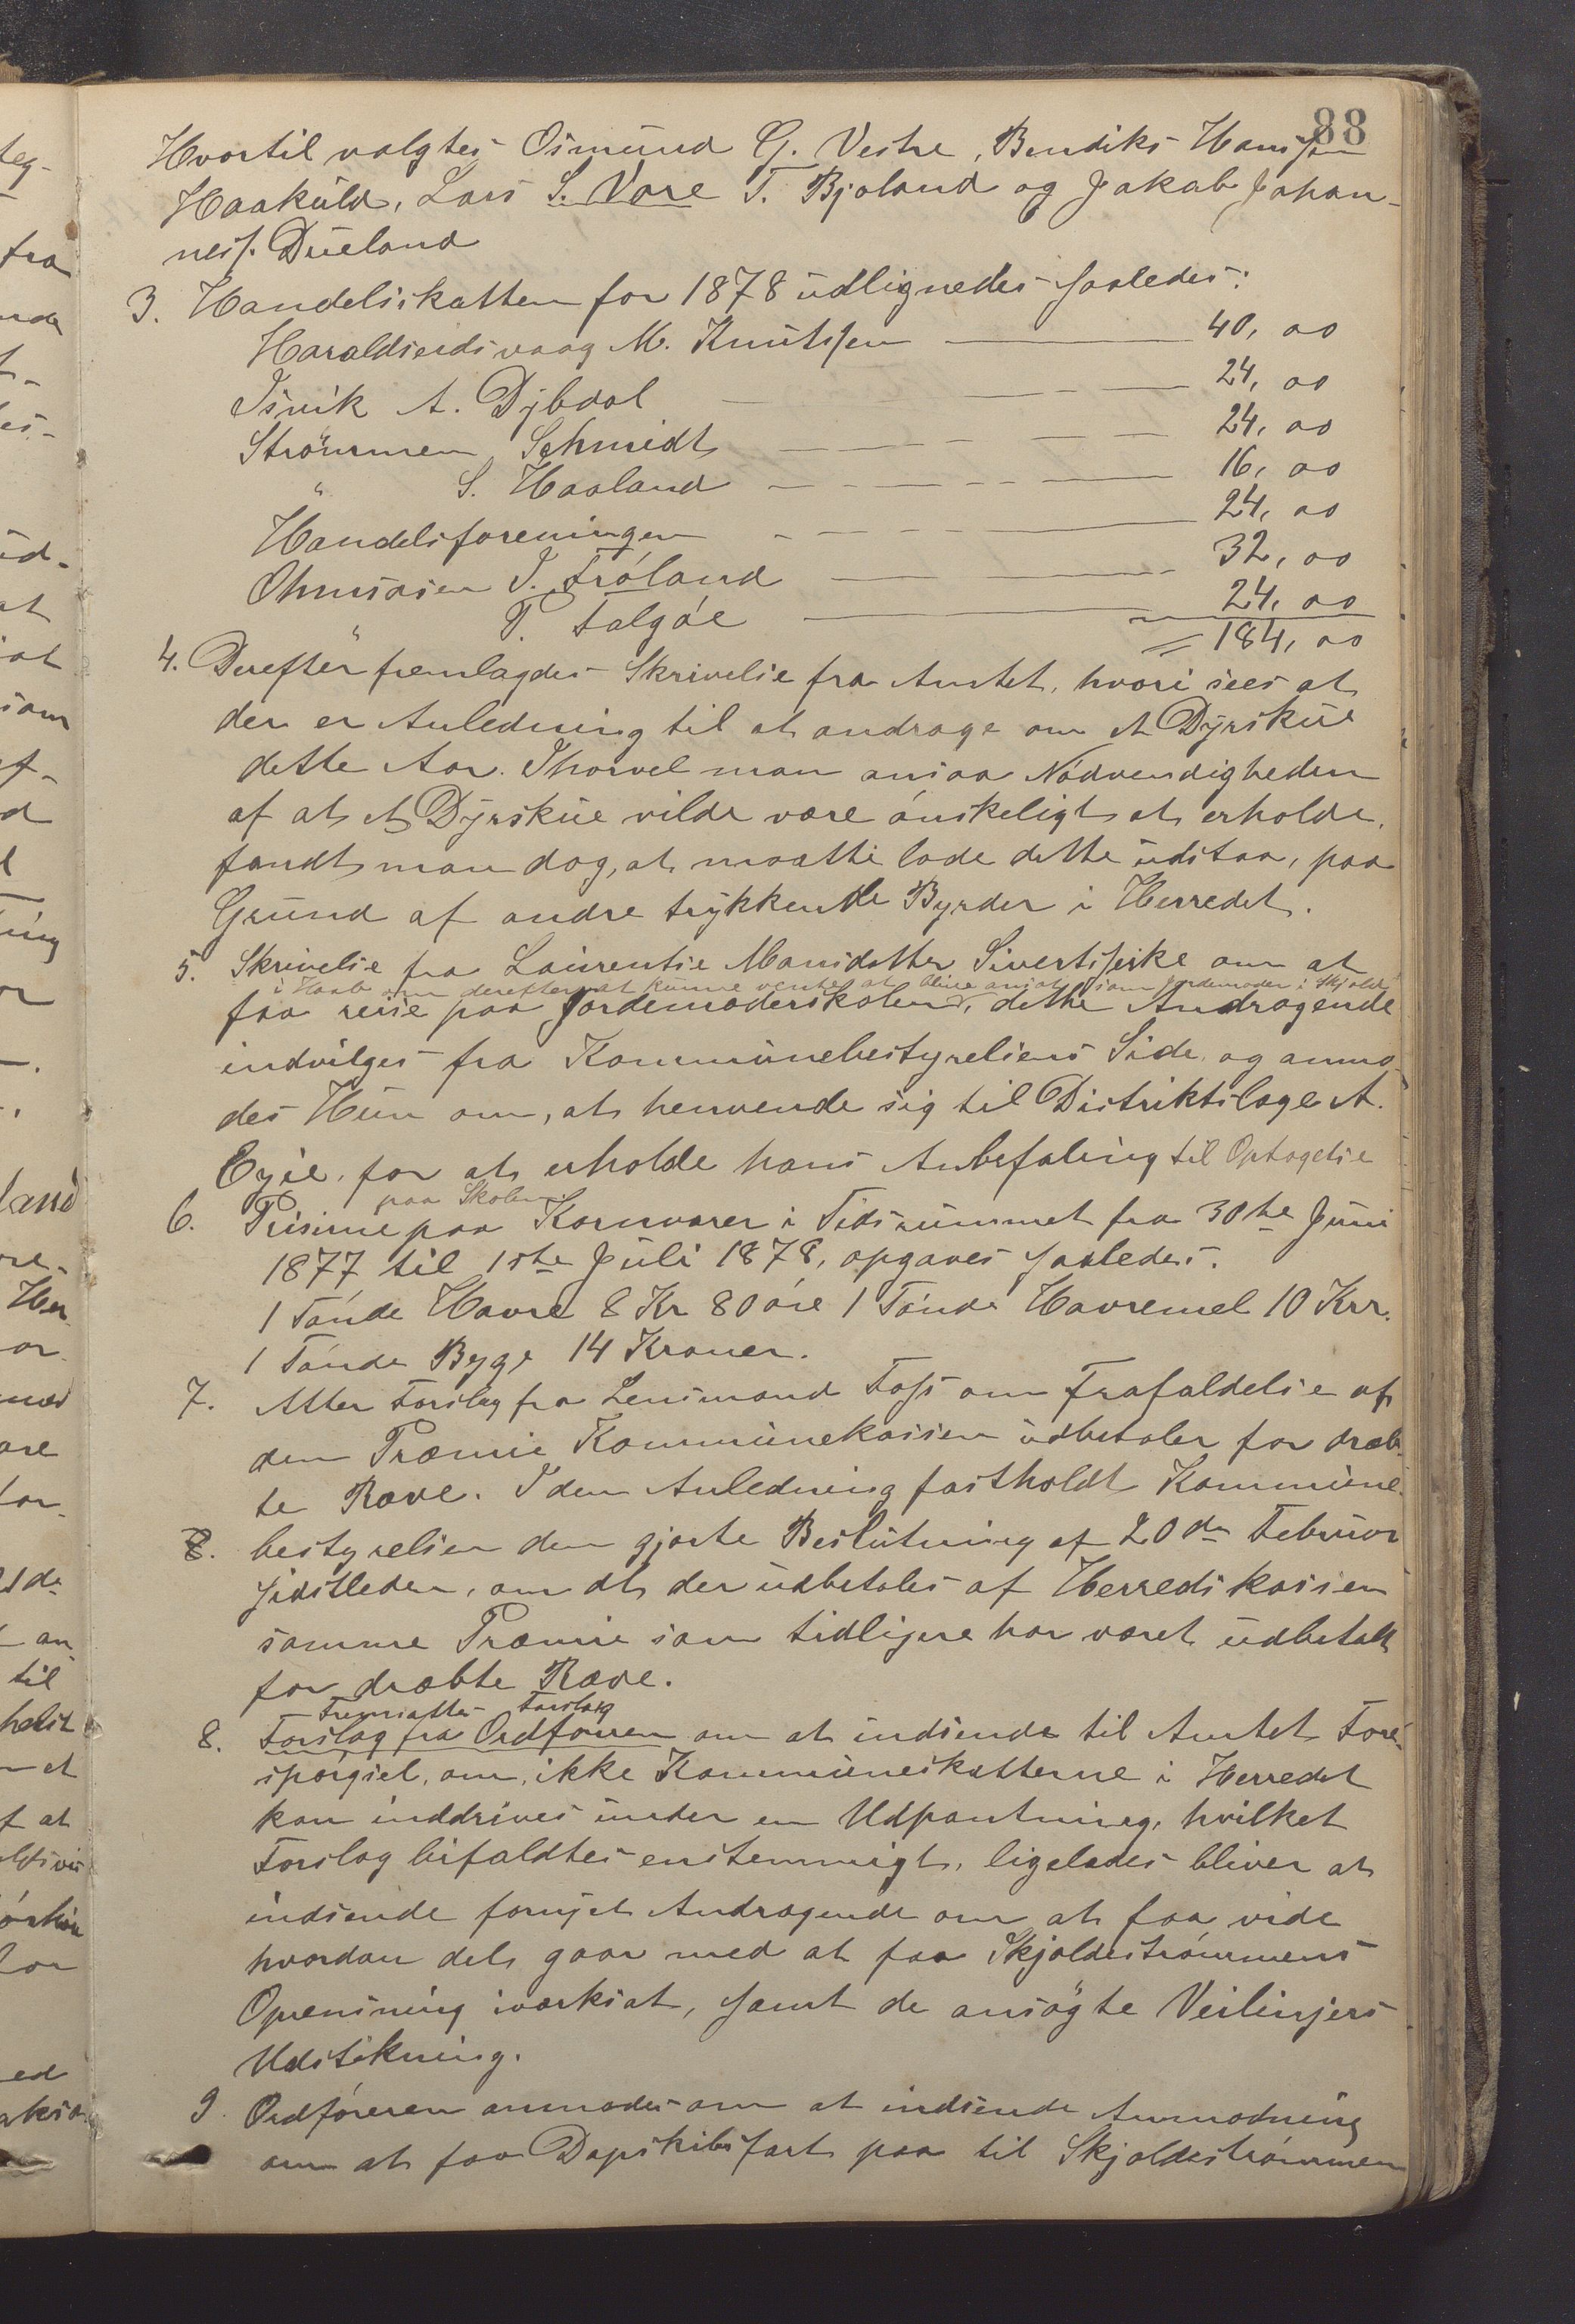 88
Hvortil valgtes Osmund G. Vestre, Bendiks Hanssen
Haakuld, Lars S. Vare T. Bjoland og Jakob Johan-
ness. Dueland
3. Handelsskatten for 1878 udlignedes saaledes:
Haraldseidsvaag M. Knutssen 40, 00
Isvik A. Dybdal 24, 00
Strömmen Schmidt 24, 00
" S. Haaland 16, 00
Handelsforeningen 24, 00
Ohmsosen I. Fróland 32, 00
" P. Falgóe 24, 00
= 184, 00
4. Derefter fremlagdes Skrivelse fra Amtet, hvori sees at
der er Anledning til at andrage om et Dyrskue
dette Aar. Ihorvel man ansaa Nódvendigheden
af at et Dyrskue vilde være ónskeligt at erholde,
fandt man dog, at maatte lade dette udstaa, paa
Grund af andre trykkende Byrder i Herredet.
5. Skrivelse fra Laurentse Mansdatter Sivertseike om at
i Haab om derefter at kunne vente at blive ansat som Jordemoder i Skjold
faa reise paa Jordemoderskolen, dette Andragende
indvilges fra Kommunebestyrelsens Side, og anmo-
des Hun om, at henvende sig til Distriktslæge A.
Eyie, for at erholde hans Anbefaling til Optagelse
paa Skolen.
6. Priserne paa Kornvarer i Tidsrummet fra 30te Juni
1877 til 1ste Juli 1878, opgaves saaledes.
1 Tónde Havre 8 Kr 80 óre 1 Tónde Havremel 10 Krr.
1 Tónde Byg 14 Kroner.
7. Atter Forslag fra Lensmand Foss om Frafaldelse af
den Præmie Kommunekassen udbetaler for dræb-
te Ræve. I den Anledning fastholdt Kommune-
8. bestyrelsen den gjorte Beslutning af 20de Februar
sidstleden, om at der udbetales af Herredskassen
samme Præmie som tidligere har været udbetalt
for dræbte Ræve.
Fremsatte Forslag
8. Forslag fra Ordfóreren om at indsende til Amtet Fore-
spórgsel, om ikke Kommuneskatterne i Herredet
kan inddrives under en Udpantning, hvilket
Forslag bifaldtes enstemmigt, ligeledes bliver at
indsende fornyet Andragende om at faa vide
hvordan det gaar med at faa Skjoldestrómmens
Oprensning iværksat, samt de ansögte Veilinjers
Udstikning.
9. Ordfóreren anmodes om at indsende Anmodning
om at faa Dapskibsfart paa til Skjoldestrómmen